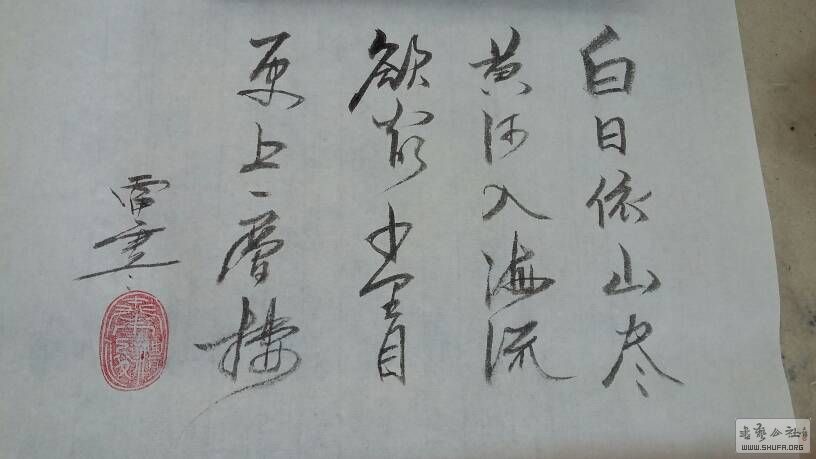 白日依山尽
黄河入海流
欲窮千里目
更上一層樓
書藝公社
WWW.SHUFA.ORG